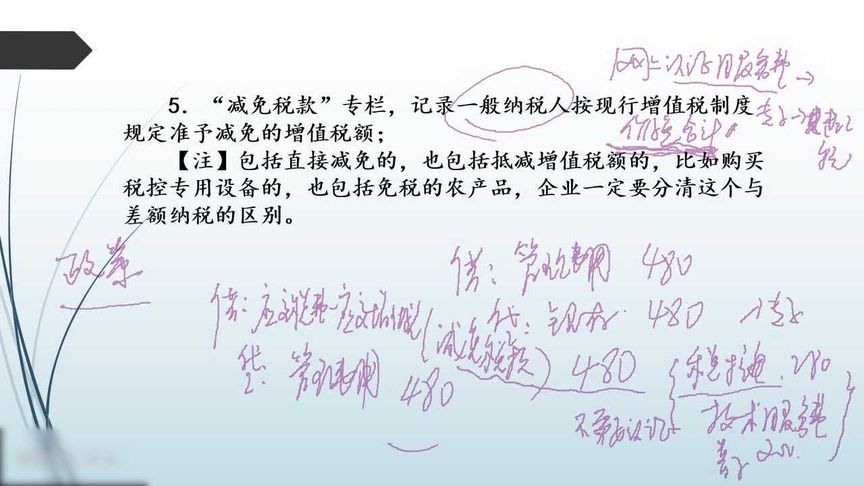 5. “减免税款”专栏，记录一般纳税人按现行增值税制度
规定准予减免的增值税额；
【注】包括直接减免的，也包括抵减增值税额的，比如购买
税控专用设备的，也包括免税的农产品，企业一定要分清这个与
差额纳税的区别。
价税合计
政策
借：管理费用 480
贷： 480
借：应交税费-应交增值税（减免税款）480
贷：管理费用 480
280
技术服务费